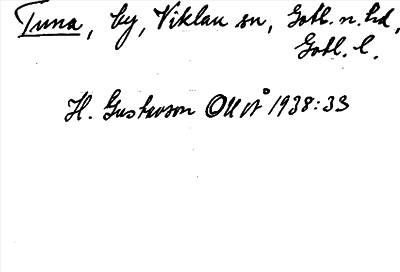 Tuna, by, Viklau sn, Gotl. n. hd,
Gotl. l.
H. Gustavson 1938:33